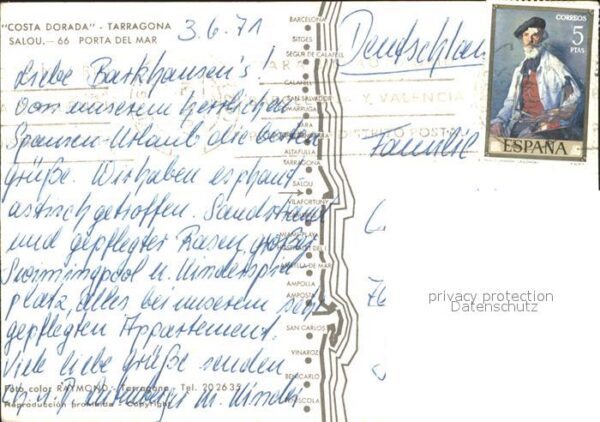 "COSTA DORADA" - TARRAGONA
SALOU.—66 PORTA DEL MAR
3.6.71
Liebe Barkhausen's!
Von unserem herrlichen
Spanien-Urlaub die besten
Grüße. Wir haben es phant
astisch getroffen. Sandstrand
und gepflegter Rasen, großer
Swimmingpool u. Kinderspiel
platz, alles bei unserem sehr
gepflegten Appartement.
Viele liebe Grüße senden
m. Kinder
Foto color RAYMOND - Tarragona - Tel. 202635
Reproducción prohibida - Copyright
BARCELONA
SITGES
SEGUR DE CALAFELL
CALAFELL
SAN SALVADOR
ALTAFULLA
TARRAGONA
SALOU
VILAFORTUNY
MIAMI-PLAYA
AMETLLA DE MAR
AMPOLLA
AMPOSTA
SAN CARLOS
VINAROZ
BENICARLO
PEÑISCOLA
Deutschland
Y VALENCIA
DISTRITO POSTAL
Familie
CORREOS
5
PTAS
ESPAÑA
privacy protection
Datenschutz